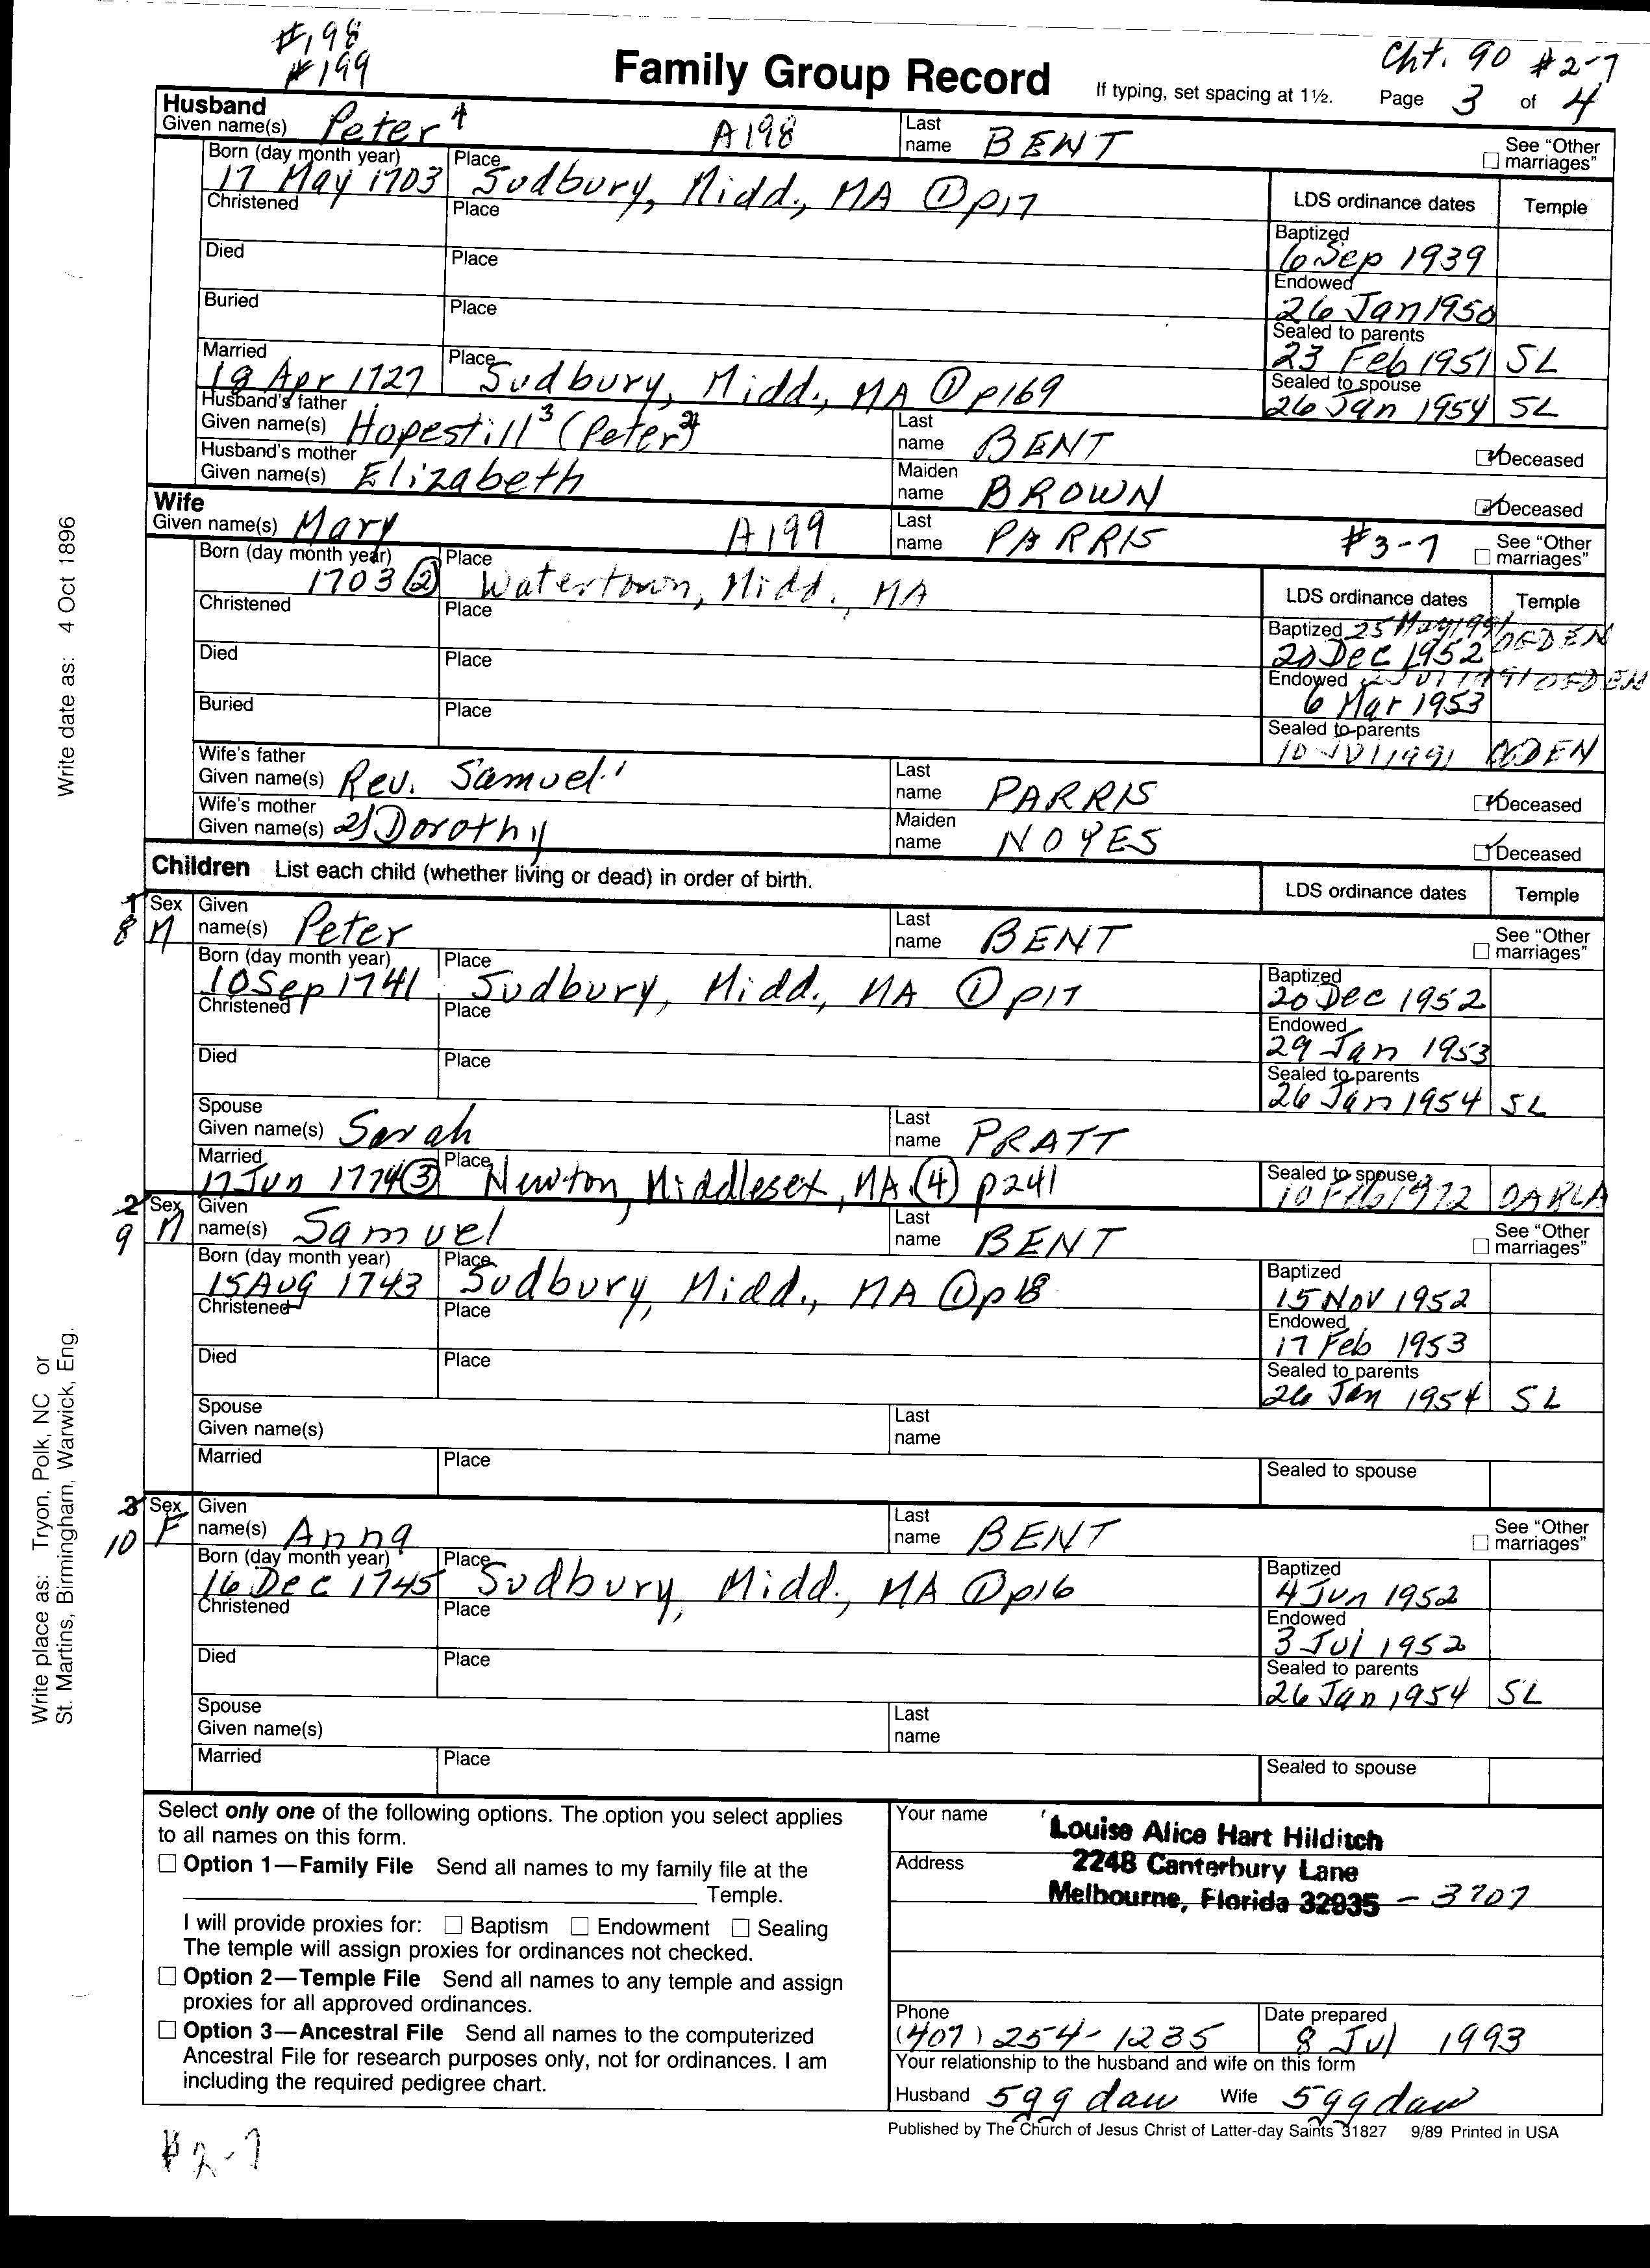 #198
#199
Cht. 90 #2-7
Family Group Record
If typing, set spacing at 1½.
Page 3 of 4
Husband
Given name(s) Peter 4 A198 Last name BENT
See "Other marriages"
Born (day month year) 17 May 1703 Place Sudbury, Midd., MA ① p17
LDS ordinance dates Temple
Christened Place
Baptized 6 Sep 1939
Died Place
Endowed 26 Jan 1950
Buried Place
Sealed to parents 23 Feb 1951 SL
Married 18 Apr 1727 Place Sudbury, Midd., MA ① p169
Sealed to spouse 26 Jan 1954 SL
Husband's father
Given name(s) Hopestill 3 (Peter 2) Last name BENT Deceased
Husband's mother
Given name(s) Elizabeth Maiden name BROWN Deceased
Wife
Given name(s) Mary A199 Last name PARRIS #3-7
See "Other marriages"
Born (day month year) 1703 ② Place Watertown, Midd., MA
LDS ordinance dates Temple
Christened Place
Baptized 25 May 1991 OGDEN
20 Dec 1952
Died Place
Endowed 2 Jul 1991 OGDEN
6 Mar 1953
Buried Place
Sealed to parents 10 Jul 1991 OGDEN
Wife's father
Given name(s) Rev. Samuel 1 Last name PARRIS Deceased
Wife's mother
Given name(s) 2) Dorothy Maiden name NOYES Deceased
Children List each child (whether living or dead) in order of birth.
LDS ordinance dates Temple
1 8 Sex M Given name(s) Peter Last name BENT
See "Other marriages"
Born (day month year) 10 Sep 1741 Place Sudbury, Midd., MA ① p17
Baptized 20 Dec 1952
Christened Place
Endowed 29 Jan 1953
Died Place
Sealed to parents 26 Jan 1954 SL
Spouse
Given name(s) Sarah Last name PRATT
Married 17 Jun 1774 ③ Place Newton, Middlesex, MA. ④ p241
Sealed to spouse 10 Feb 1972 OAKLA
2 9 Sex M Given name(s) Samuel Last name BENT
See "Other marriages"
Born (day month year) 15 Aug 1743 Place Sudbury, Midd., MA ① p18
Baptized 15 Nov 1952
Christened Place
Endowed 17 Feb 1953
Died Place
Sealed to parents 26 Jan 1954 SL
Spouse
Given name(s) Last name
Married Place
Sealed to spouse
3 10 Sex F Given name(s) Anna Last name BENT
See "Other marriages"
Born (day month year) 16 Dec 1745 Place Sudbury, Midd., MA ① p16
Baptized 4 Jun 1952
Christened Place
Endowed 3 Jul 1952
Died Place
Sealed to parents 26 Jan 1954 SL
Spouse
Given name(s) Last name
Married Place
Sealed to spouse
Select only one of the following options. The option you select applies
to all names on this form.
Option 1—Family File Send all names to my family file at the
Temple.
I will provide proxies for: Baptism Endowment Sealing
The temple will assign proxies for ordinances not checked.
Option 2—Temple File Send all names to any temple and assign
proxies for all approved ordinances.
Option 3—Ancestral File Send all names to the computerized
Ancestral File for research purposes only, not for ordinances. I am
including the required pedigree chart.
Your name Louise Alice Hart Hilditch
Address 2248 Canterbury Lane
Melbourne, Florida 32935 - 3707
Phone (407) 254-1235
Date prepared 8 Jul 1993
Your relationship to the husband and wife on this form
Husband 5gg dau Wife 5gg dau
Published by The Church of Jesus Christ of Latter-day Saints 31827 9/89 Printed in USA
#2-7
Write date as: 4 Oct 1896
Write place as: Tryon, Polk, NC or
St. Martins, Birmingham, Warwick, Eng.